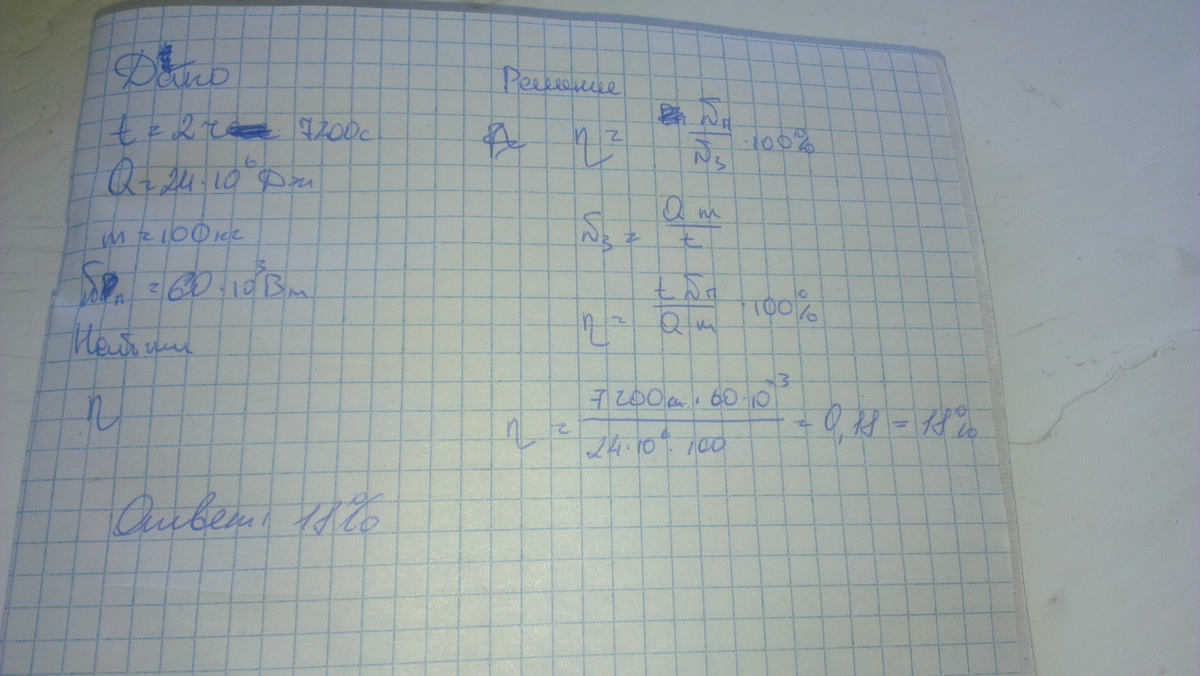 Дано
t = 2 ч 7200с
Q = 24·10⁶ Дж
m = 100 кг
Nп = 60·10³ Вт
Найти
η
Решение
η = Nп/Nз ·100%
Nз = Q m/t
η = t Nп/Q m ·100%
η = 7200 · 60·10³/24·10⁶·100 = 0,18 = 18%
Ответ: 18%